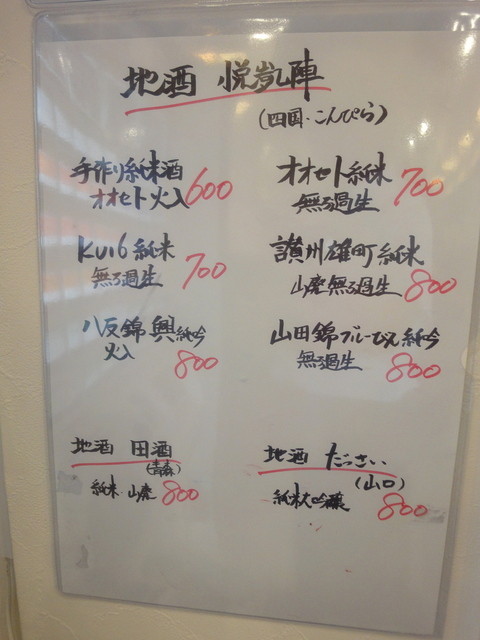 地酒 悦凱陣
(四国・こんぴら)
手作り純米酒
オオセト火入 600
オオセト純米
無ろ過生 700
KU16 純米
無ろ過生 700
讃州雄町純米
山廃無ろ過生 800
八反錦 興 純吟
火入 800
山田錦ブルーびん純吟
無ろ過生 800
地酒 田酒
(青森)
純米 山廃 800
地酒 だっさい
(山口)
純米大吟醸 800